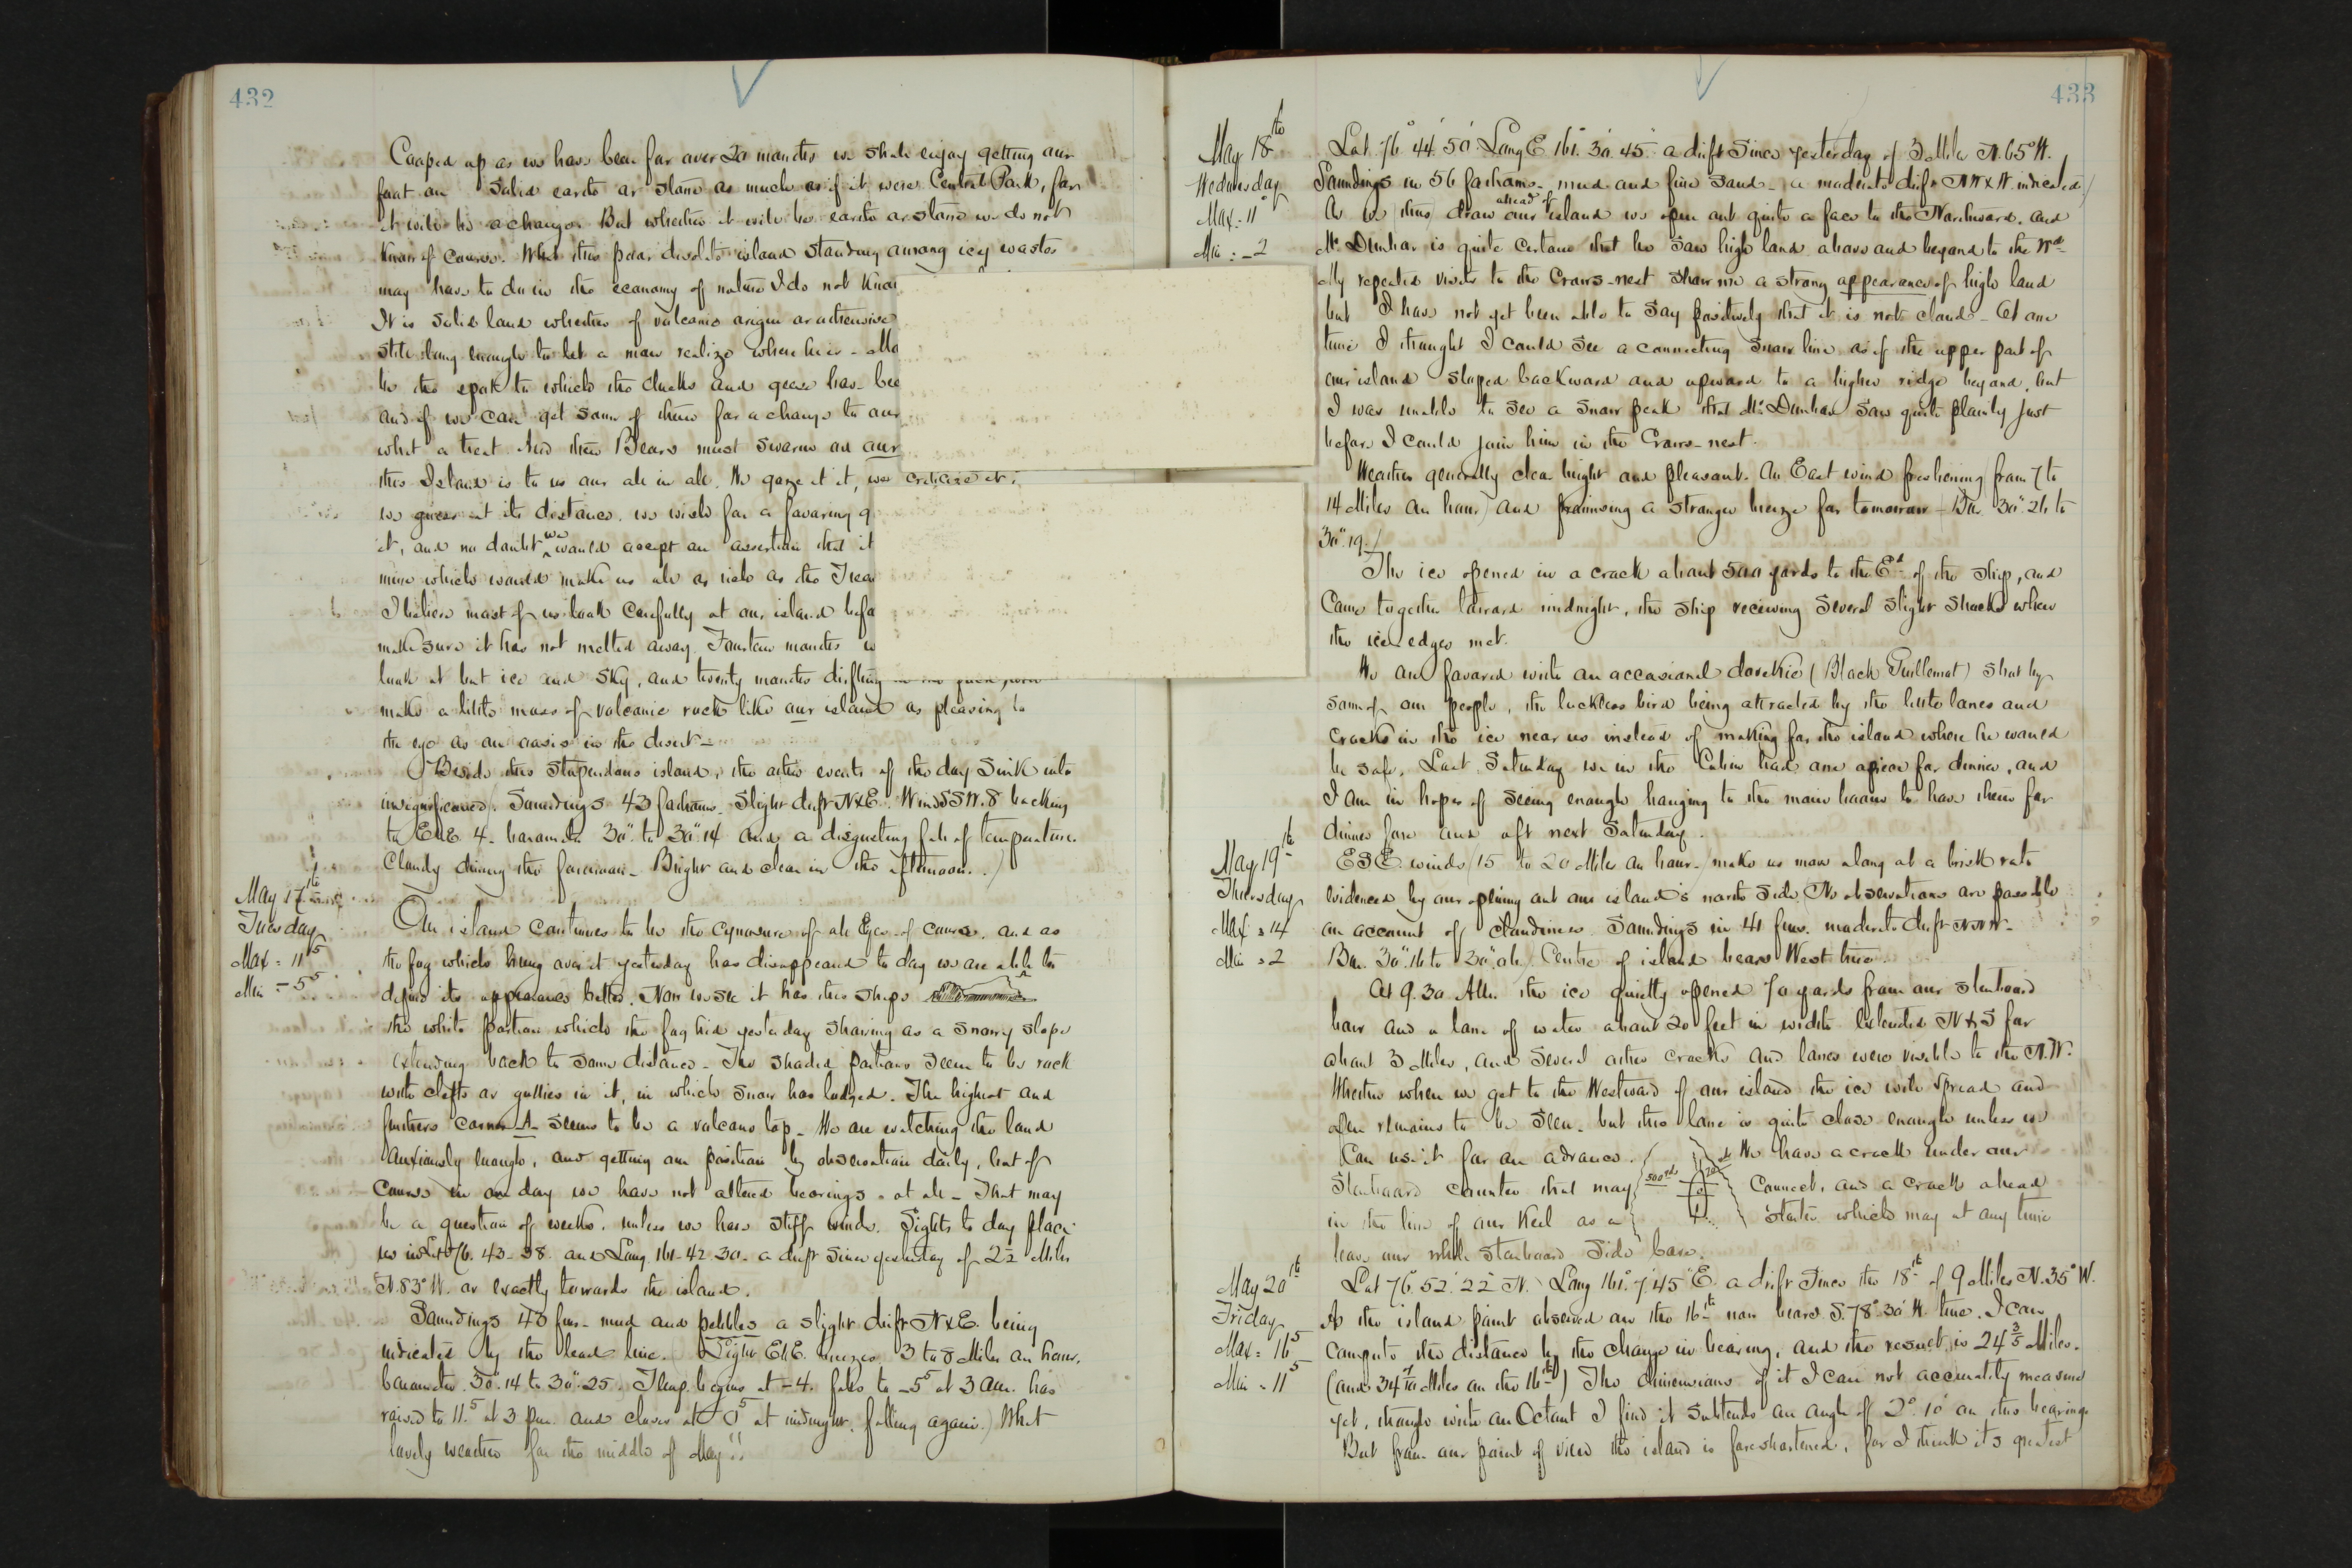 432
Cooped up as we have been for over 20 months we shall enjoy getting our
foot on solid earth or stone as much as if it were Central Park, for
it will be a change. But whether it will be earth or stone we do not
know of course. What this poor desolate island standing among icy wastes
may have to do in the economy of nature I do not know
It is solid land whether of volcanic origin or otherwise
still long enough to let a man realize where he is - Ma
be the spot to which the ducks and geese have bee
and if we can get some of them for a change to our
what a treat. And then Bears must swarm on our
this Island is to us our all in all. We gaze at it, we criticize it;
we guess at its distance, we wish for a favoring g
it, and no doubt we would accept an assertion that it
mine which would make us all as rich as the Trea
I believe most of us look carefully at our island befo
make sure it has not melted away. Fourteen months w
look at but ice and sky, and twenty months drifting in the pack, will
make a little mass of volcanic rock like our island as pleasing to
the eye as an oasis in the desert -
Beside this stupendous island, the other events of the day sink into
insignificance. Soundings 43 fathoms. Slight drift NxE. Wind SSW. 8 backing
to ENE 4. barometer 30". to 30".14 and a disgusting fall of temperature.
Cloudy during the forenoon - Bright and clear in the afternoon.)
May 17th
Tuesday
Max = 11⁵
Min = -5⁵
Our island continues to be the cynosure of all Eyes of course, and as
the fog which hung over it yesterday has disappeared to day we are able to
define its appearance better. Now we see it has this shape
the white portion which the fog hid yesterday showing as a snowy slope
extending back to some distance - The shaded portions seem to be rock
with clefts or gullies in it, in which snow has lodged. The highest and
furthest corner A seems to be a volcano top - We are watching the land
anxiously enough, and getting our position by observation daily, but of
course in one day we have not altered bearings at all - That may
be a question of weeks, unless we have stiff winds. Sights to day place
us in Lat 76. 43. 38. and Long 161. 42. 30. a drift since yesterday of 2 2 Miles
N. 83° W. or exactly towards the island.
Soundings 43 fms - mud and pebbles a slight drift NxE. being
indicated by the lead line. Light ENE. breezes 3 to 8 Miles an hour,
barometer 30".14 to 30".25. Temp. begins at -4. falls to -5⁵ at 3 Am. has
raised to 11.⁵ at 3 pm. and closes at 0⁵ at midnight, falling again.) What
lovely weather for the middle of May!!
433
May 18th
Wednesday
Max = 11°
Min : -2
Lat 76° 44' 50" Long E 161° 30' 45" a drift since yesterday of 3 Miles N. 65° W.
Soundings in 56 fathoms - mud and fine sand - a moderate drift NWxW. indicated.)
As we thus draw ahead of our island we open out quite a face to the Northward. and
Mr Dunbar is quite certain that he saw high land above and beyond to the Wd
My repeated visits to the Crows-nest show me a strong appearance of high land
but I have not yet been able to say positively that it is not cloud - At one
time I thought I could see a connecting snow line as if the upper part of
our island sloped backward and upward to a higher ridge beyond, but
I was unable to see a snow peak that Mr Dunbar saw quite plainly just
before I could join him in the Crows-nest.
Weather generally clear bright and pleasant. An East wind freshening from 7 to
14 Miles an hour) and promising a stronger breeze for tomorrow - Bar. 30".26 to
30".19.)
The ice opened in a crack about 500 yards to the Ed of the ship, and
came together toward midnight, the ship receiving several slight shocks when
the ice edges met.
We are favored with an occasional dovekie (Black Guillemot) shot by
some of our people, the luckless bird being attracted by the little lanes and
cracks in the ice near us instead of making for the island where he would
be safe. Last Saturday we in the Cabin had one apiece for dinner, and
I am in hopes of seeing enough hanging to the main boom to have them for
dinner fore and aft next Saturday.
May 19th
Thursday
Max = 14
Min = 2
ESE. winds (15 to 20 Miles an hour - make us move along at a brisk rate
evidenced by our opening out our island's north side. No observations are possible
on account of cloudiness. Soundings in 41 fms. moderate drift NNW.
Bar. 30".16 to 30".06) Centre of island bears West true.
At 9.30 AM. the ice quietly opened 70 yards from our starboard
bow and a lane of water about 20 feet in width extended N&S for
about 3 Miles, and several other cracks and lanes were visible to the N.W.
Whether when we get to the Westward of our island the ice will spread and
open remains to be seen - but this lane is quite close enough unless we
can use it for an advance. We have a crack under our
starboard counter that may 500 yds 70 connect, and a crack ahead
in the line of our keel as a started which may at any time
leave our whole starboard side bare.
May 20th
Friday
Max = 16⁵
Min = 11⁵
Lat 76° 52' 22" N. Long 161° 7' 45" E. a drift since the 18th of 9 Miles N. 35° W.
As the island point observed on the 16th now bears S. 78° 30' W. true. I can
compute the distance by the change in bearing, and the result is 24 3/5 Miles.
(and 34 4/10 Miles on the 16th) The dimensions of it I can not accurately measure
yet, though with an Octant I find it subtends an angle of 2° 10' on this bearing
But from our point of view the island is foreshortened, for I think its greatest